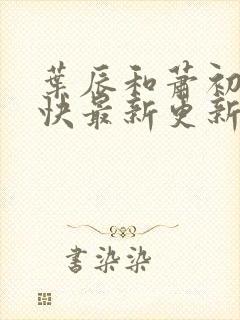 葉辰和蕭初
快最新更新
書染染